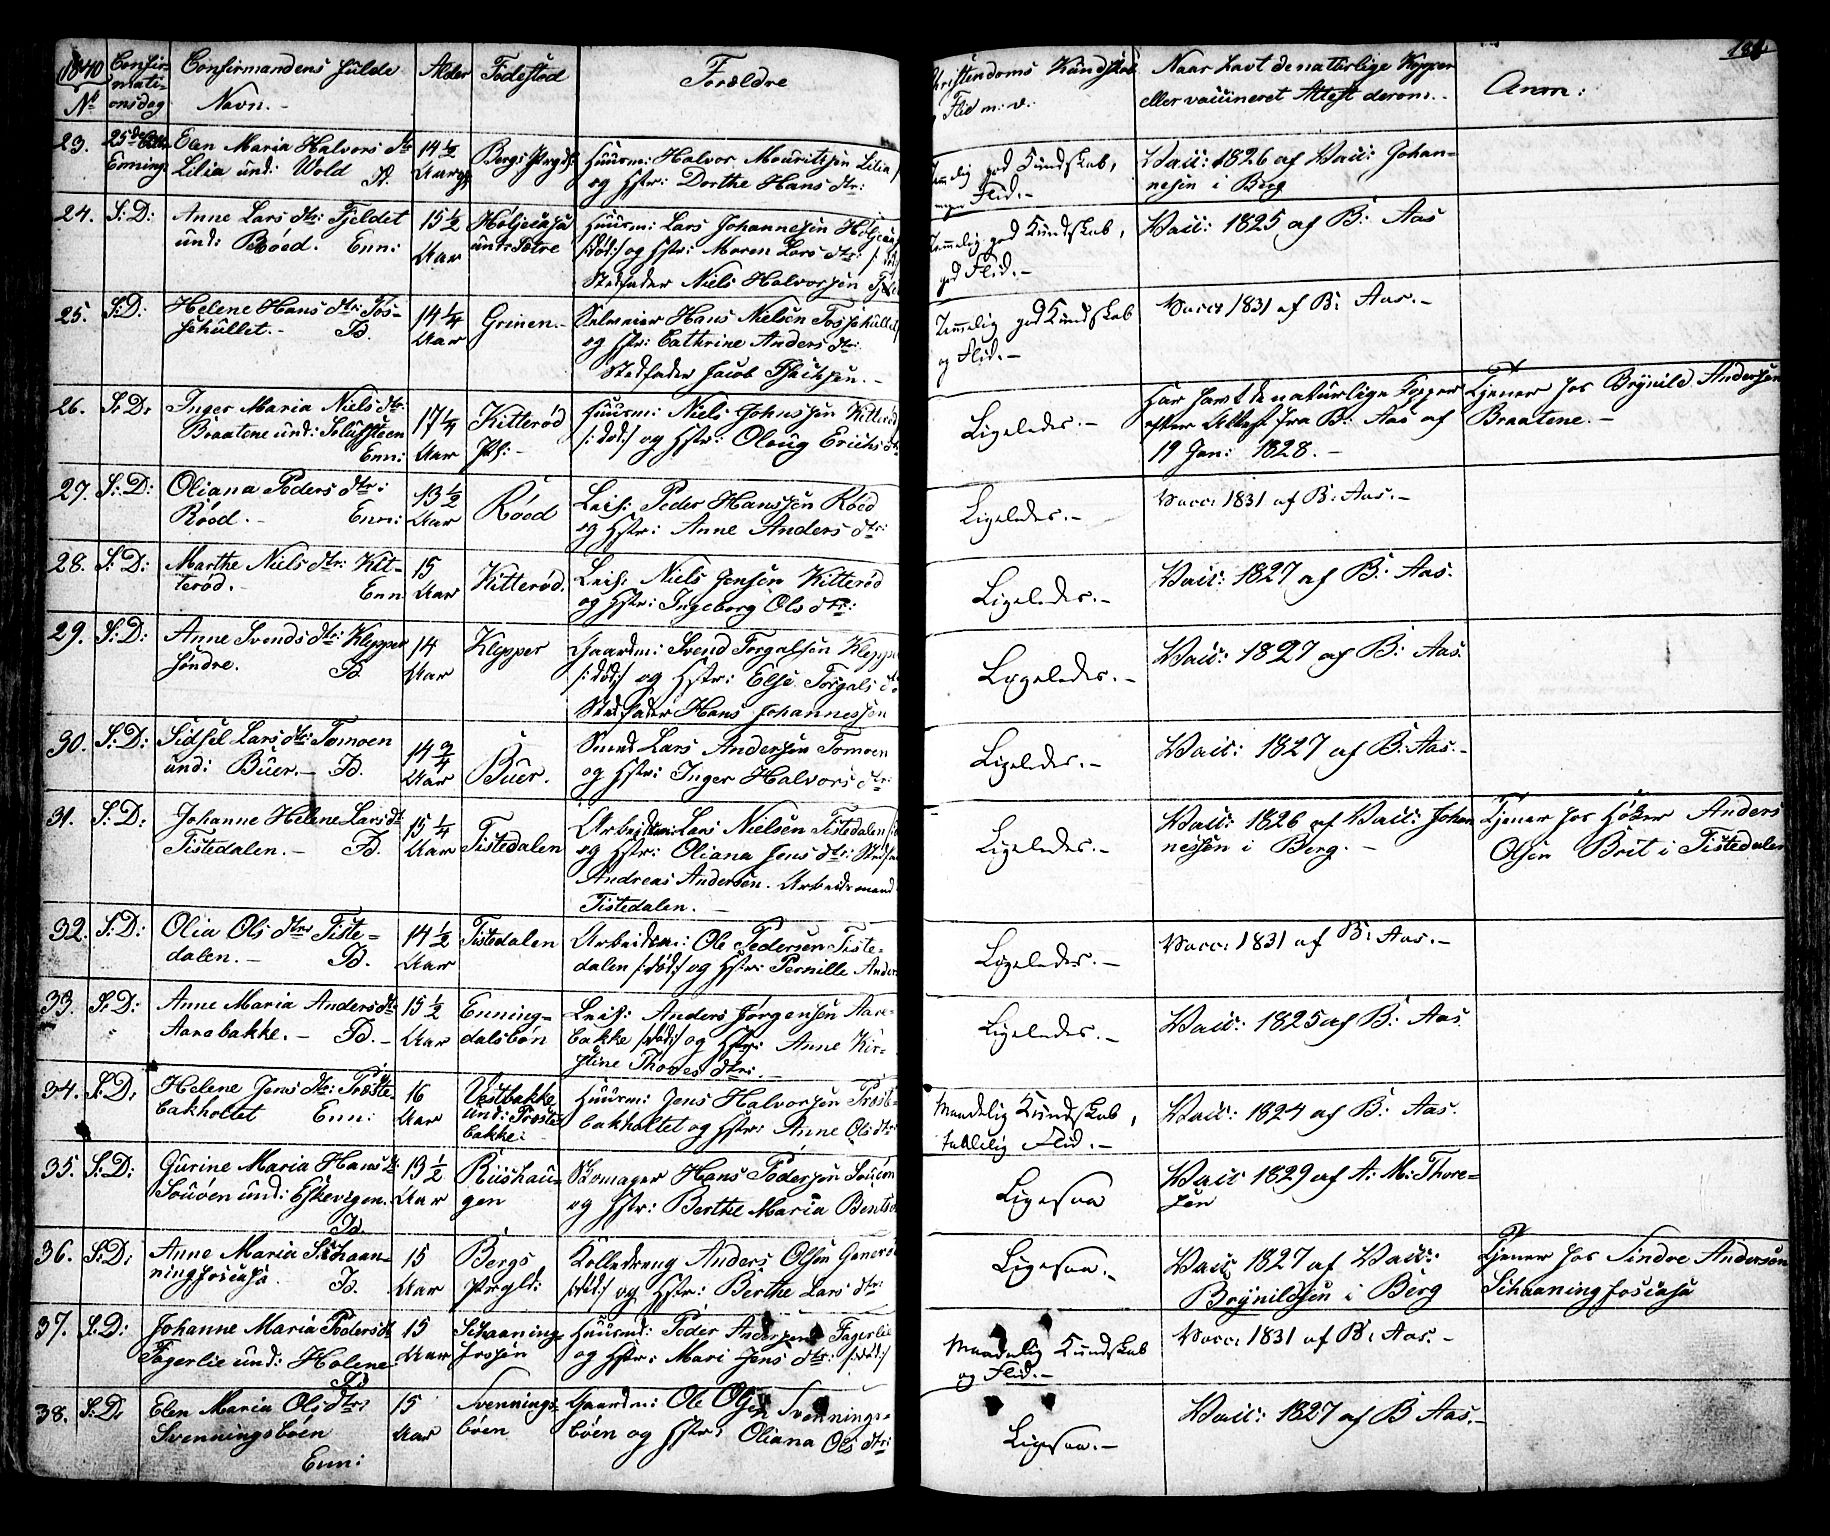 1840
No
Confir-
mati-
onsdag
Confirmandens fulde
Navn.-
Alder
Fødestæd
Forældre
Christendoms Kundskab
Flid m: v:
Naar havt de naturlige Kopper
eller vaccineret Attest derom.-
Anm:
23.
Enning
Elen Maria Halvors dtr
Lilia und: Wold B.
14 1/2
Aar
Bergs Prgld:
Huusm: Halvor Mouritsen Lilia
og Hstr: Dorthe Hans dtr:
Temmelig god Kundskab,
Flid.-
Vacc: 1826 af Vacc: Johan-
nesen i Berg
24. S: D:
Anne Lars dtr: Fjeldet
und: Røed. Enn:
15 1/2
Aar
und: Sætre
Huusm: Lars Johannesen
/:død:/ og Hstr: Maren Lars dtr:
Stedfader Niels Halvorsen
Temmelig god Kundskab,
god Flid.-
Vacc: 1825 af B: Aas
25. S: D:
Helene Hans dtr: Fos-
sehullet.- B.
14 1/4
Aar
Grinen.-
Hans Nielsen Fossehullet
og Hstr: Cathrine Anders dtr:
Stedfader Jacob
Temmelig god Kundskab
og Flid.-
Vacc: 1831 af B: Aas.-
26. S: D:
Inger Maria Niels dtr:
Braatene und:
Enn:
17 1/4
Aar
Kitterød
Huusm: Niels Johnssen Kitterød
/:død:/ og Hstr: Oloug Erichs dtr:
Ligeledes.-
Har havt de naturlige Kopper
efter Attest fra B: Aas af
19 Jan: 1828.-
Tjener hos Brynild Andersen
Braatene.-
27. S: D:
Oliana Peders dtr:
Røed.- Enn:
13 1/2
Aar
Røed
Leil: Peder Hanssen Røed
og Hstr: Anne Anders dtr:
Ligeledes.-
Vacc: 1831 af B: Aas.-
28. S: D:
Marthe Niels dtr: Kit-
terød. Enn
15
Aar
Kitterød.
Leil: Niels Jensen Kitterød
og Hstr: Ingeborg Ols dtr:
Ligeledes.-
Vacc: 1827 af B: Aas.
29. S: D:
Anne Svends dtr: Klepper
søndre. B.
14
Aar
Klepper
Gaardm: Svend Torgalsen Klepper
/:død:/ og Hstr: Else Torgals dtr
Stedfader Hans Johannessen
Ligeledes.-
Vacc: 1827 af B: Aas.
30. S: D:
Sidsel Lars dtr: Tomoen
und: Buer.- B.
14 3/4
Aar
Buer.
Smed Lars Andersen Tomoen
og Hstr: Inger Halvors dtr:
Ligeledes.-
Vacc: 1827 af B: Aas.-
31. S: D:
Johanne Helene Lars dtr
Tistedalen.- B.
15 1/4
Aar
Tistedalen
Arbeidsm: Lars Nielsen Tistedalen
og Hstr: Oliana Jens dtr:
Andreas Andersen. Arbeidsmand
Tistedalen.-
Ligeledes.-
Vacc: 1826 af Vacc: Johan
nessen i Berg.-
Tjener hos Høker Anders
Olsen Brit i Tistedalen
32. S: D:
Olia Ols dtr: Tiste-
dalen.- B.
14 1/2
Aar
Tistedalen
Arbeidsm: Ole Pedersen Tiste-
dalen /:død:/ og Hstr: Pernille Anders
Ligeledes.-
Vacc: 1831 af B: Aas.-
33. S: D:
Anne Maria Anders dtr
Aarebakke.- B.-
15 1/2
Aar
Enning-
dalsbøn
Leil: Anders Jørgensen Aare-
bakke /:død:/ og Hstr: Anne Kir-
stine Thoves dtr:-
Ligeledes.-
Vacc: 1825 af B: Aas
34. S: D:
Helene Jens dtr: Præste-
bakholtet Enn:
16
Aar
Vestbakke
und: Præste
bakke:
Huusm: Jens Halvorsen Præste-
bakholtet og Hstr: Anne Ols dtr:
Maadelig Kundskab,
Flid.-
Vacc: 1824 af B: Aas.
35. S: D:
Gurine Maria Hans dtr:
und: Eskevigen.
B.
13 1/2
Aar
Riishau-
gen
Skomager Hans Pedersen
og Hstr: Berthe Maria Bents
Ligesaa
Vacc 1829 af A: M: Thore-
sen
36. S: D:
Anne Maria Schaan-
ningfosiasa B.
15
Aar
Bergs
Prgld:
Kulledreng Anders Olsen
/:død:/ og Hstr: Berthe Lars dtr
Ligesaa.-
Vacc 1827 af Vacc:
Brynildsen i Berg
Tjener hos Sindre Andersen
Schaaningfosiasa
37. S: D:
Johanne Maria Peders dtr
Fagerlie und: Holene
B
15
Aar
Schaaning-
Huusmd: Peder Andersen Fagerlie
og Hstr: Mari Jens dtr: /:død:/
Maadelig Kundskab
og Flid.-
Vacc: 1831 af B: Aas.-
38. S: D:
Elen Maria Ols dtr:
Svenningsbøen
Enn:
15
Aar
Svennings-
bøen
Gaardm: Ole Olsen Svennings-
bøen og Hstr: Oliana Ols dtr:
Ligesaa.-
Vacc: 1827 af B Aas.-